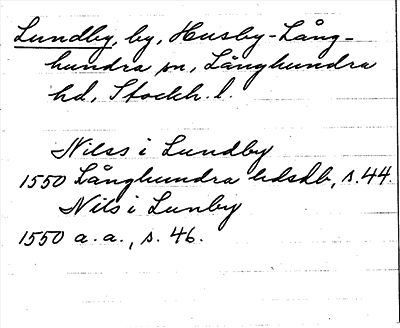 Lundby, by, Husby-Lång-
hundra sn, Långhundra
hd, Stockh. l.
Nilss i Lundby
1550 Långhundra hdsdb, s. 44.
Nils i Lunby
1550 a. a., s. 46.